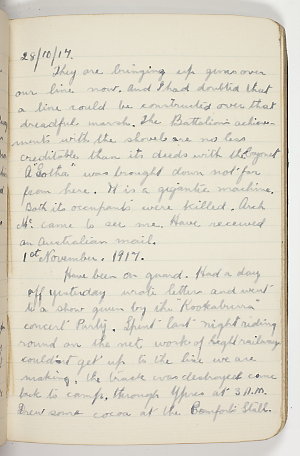 28/10/17.
They are bringing up guns over
our line now. And I had doubted that
a line could be constructed over that
dreadful marsh. The Battalions achieve-
ments with the shovel are no less
creditable than its deeds with the bayonet
A "Gotha" was brought down not far
from here. It is a gigantic machine.
Both its occupants were killed. Arch
Mc. came to see me. Have received
an Australian mail.
1st November. 1917.
Have been on guard. Had a day
off yesterday wrote letters and went
to a show given by the "Kookaburra"
concert Party. Spent last night riding
round on the net work of light railways
couldst get up to the line we are
making, the track was destroyed came
back to camp, through Ypres at 3 A.M.
Drew some cocoa at the Comforts Stall.